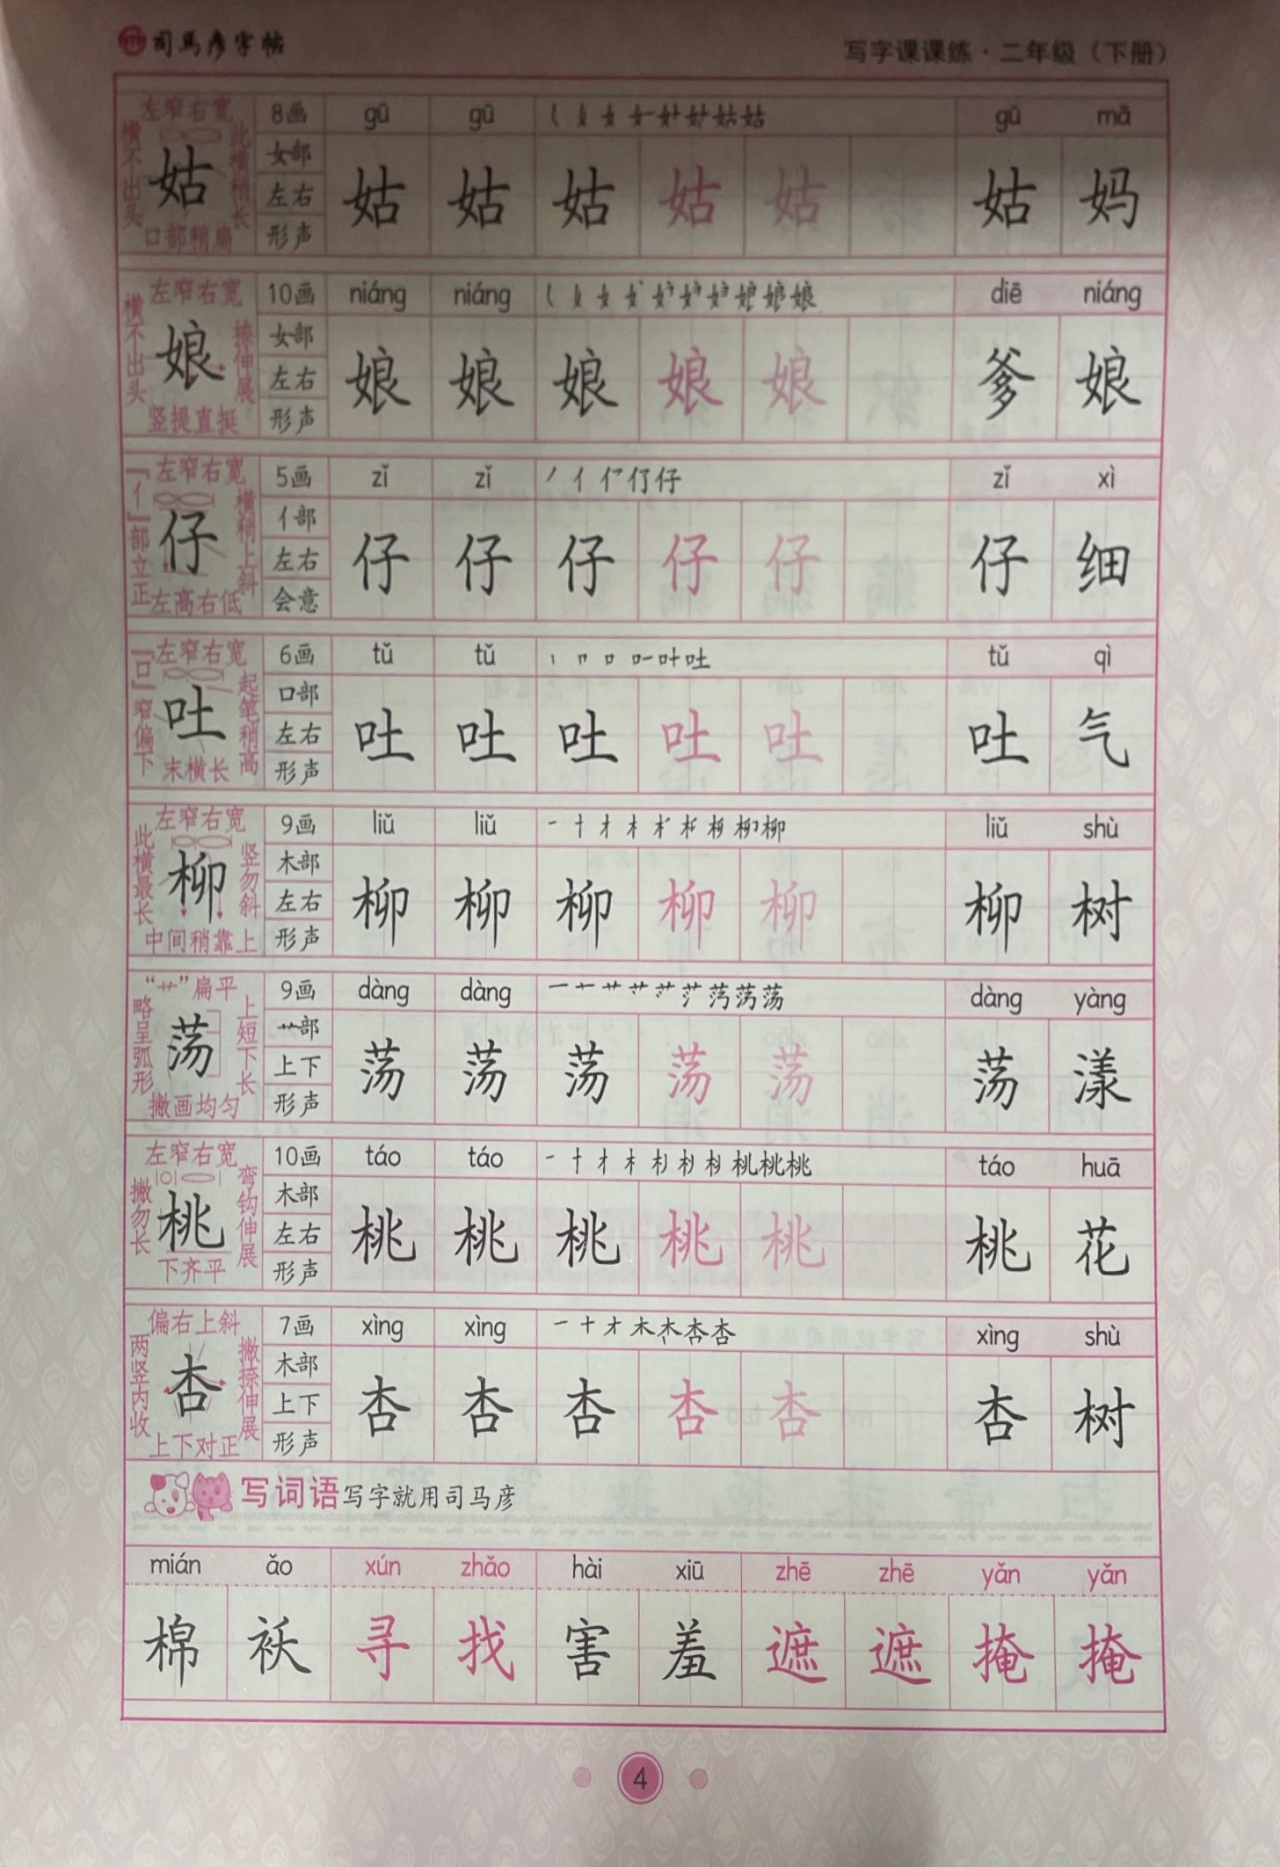 司马彦字帖
写字课课练·二年级（下册）
左窄右宽 8画 gū gū gū mā
横不出头 姑 此横稍长 女部 左右 姑 姑 姑 姑 姑 姑 妈
口部稍扁 形声
左窄右宽 10画 niáng niáng diē niáng
横不出头 娘 捺伸展 女部 左右 娘 娘 娘 娘 娘 爹 娘
竖提直挺 形声
左窄右宽 5画 zǐ zǐ zǐ xì
「亻」部立正 仔 横稍上斜 亻部 左右 仔 仔 仔 仔 仔 仔 细
左高右低 会意
左窄右宽 6画 tǔ tǔ tǔ qì
「口」窄偏下 吐 起笔稍高 口部 左右 吐 吐 吐 吐 吐 吐 气
末横长 形声
左窄右宽 9画 liǔ liǔ liǔ shù
此横最长 柳 竖勿斜 木部 左右 柳 柳 柳 柳 柳 柳 树
中间稍靠上 形声
“艹”扁平 9画 dàng dàng dàng yàng
略呈弧形 荡 上短下长 艹部 上下 荡 荡 荡 荡 荡 荡 漾
撇画均匀 形声
左窄右宽 10画 táo táo táo huā
撇勿长 桃 弯钩伸展 木部 左右 桃 桃 桃 桃 桃 桃 花
下齐平 形声
偏右上斜 7画 xìng xìng xìng shù
两竖内收 杏 撇捺伸展 木部 上下 杏 杏 杏 杏 杏 杏 树
上下对正 形声
写词语 写字就用司马彦
mián ǎo xún zhǎo hài xiū zhē zhē yǎn yǎn
棉 袄 寻 找 害 羞 遮 遮 掩 掩
4